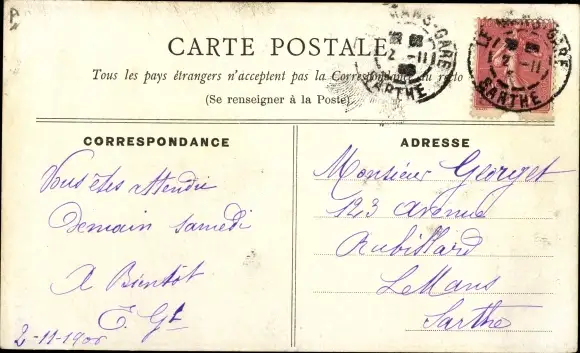 CARTE POSTALE
Tous les pays étrangers n'acceptent pas la Correspondance au recto
(Se renseigner à la Poste)
LE MANS-GARE
2 -11
SARTHE
LE MANS-GARE
2 -11
SARTHE
CORRESPONDANCE
Vous êtes attendue
Demain samedi
A Bientôt
E. Gt
2-11-1906
ADRESSE
Monsieur Georget
123 avenue
Rubillard
Le Mans
Sarthe